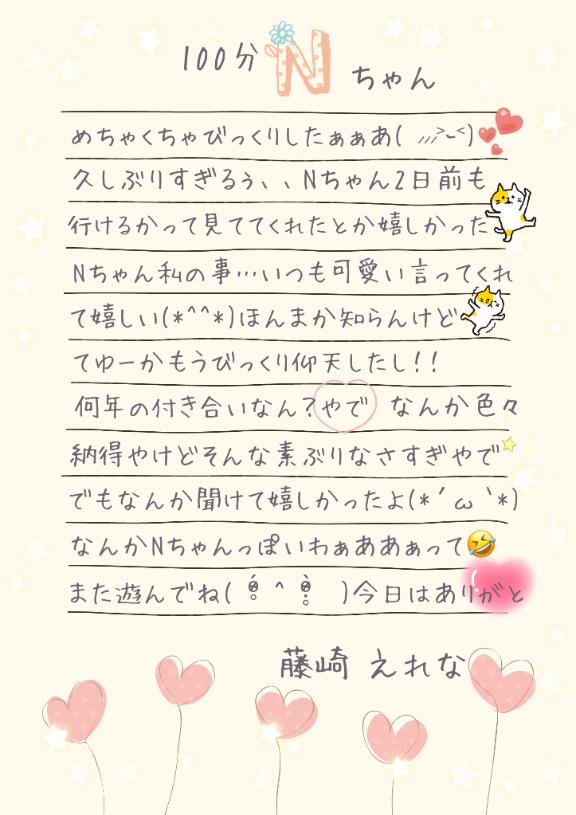 100分 Nちゃん
めちゃくちゃびっくりしたぁぁあ( ,,,>⌣<)
久しぶりすぎるぅ、、Nちゃん2日前も
行けるかって見ててくれたとか嬉しかった
Nちゃん私の事…いつも可愛い言ってくれ
て嬉しい(*^^*)ほんまか知らんけど
てゆーかもうびっくり仰天したし!!
何年の付き合いなん?やで なんか色々
納得やけどそんな素ぶりなさすぎやで
でもなんか聞けて嬉しかったよ(*´ω`*)
なんかNちゃんっぽいわぁああぁって🤣
また遊んでね( ^ )今日はありがと
藤崎 えれな